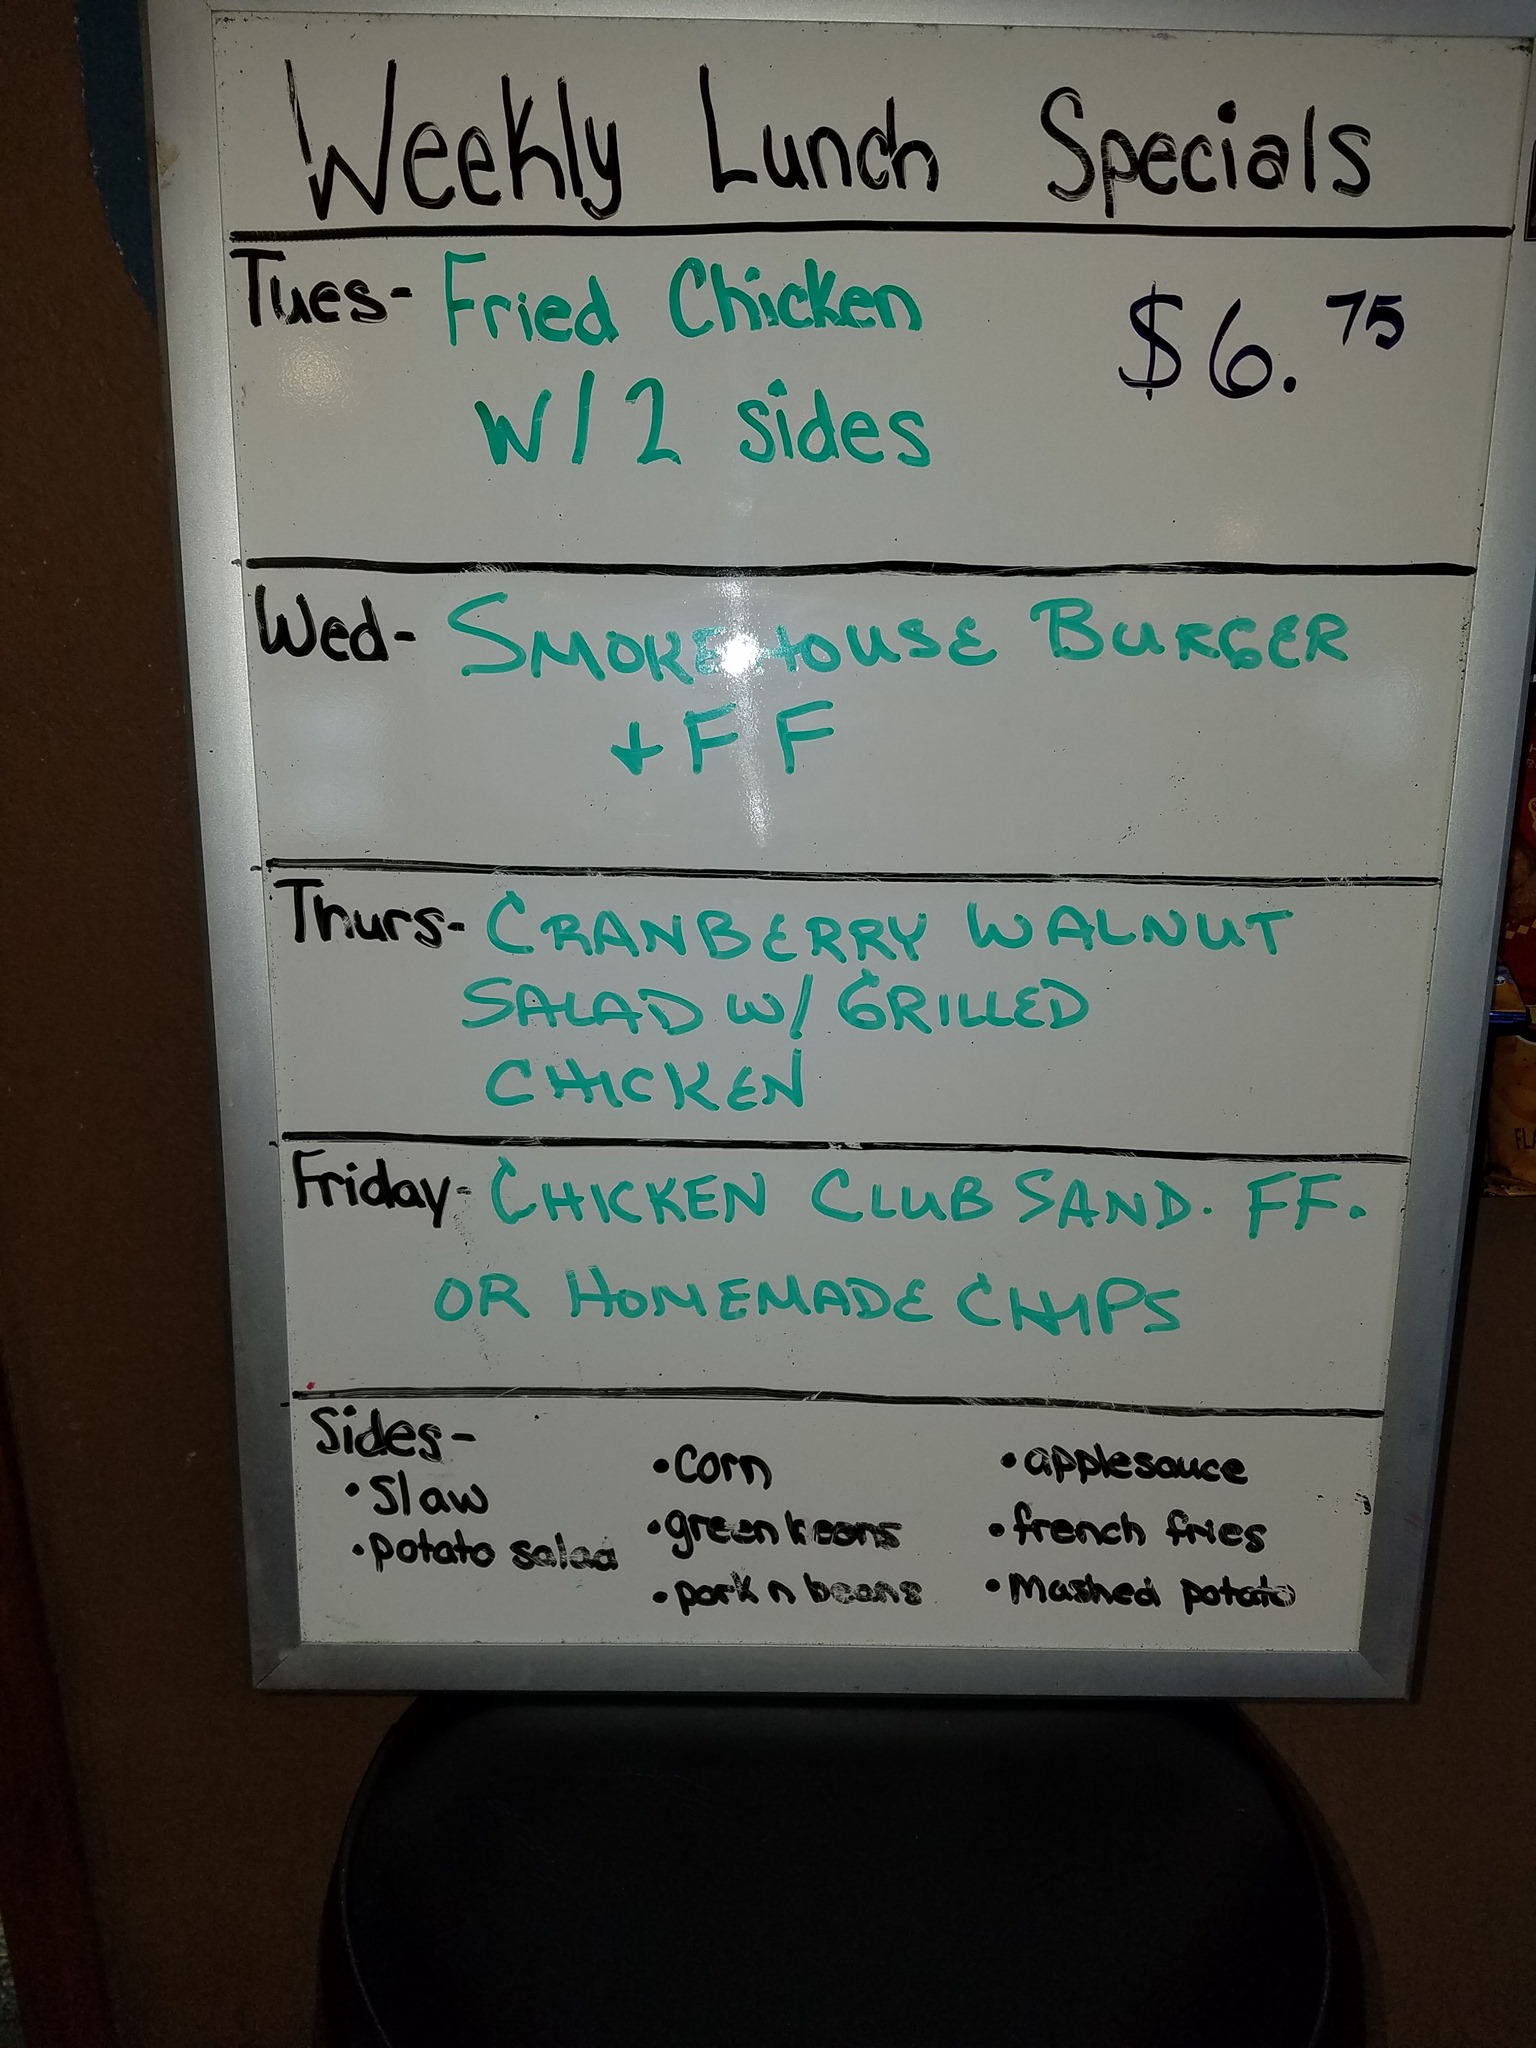 Weekly Lunch Specials
Tues- Fried Chicken $6.75
W/2 sides
Wed- SMOKEHOUSE BURGER
+ FF
Thurs- CRANBERRY WALNUT
SALAD W/ GRILLED
CHICKEN
Friday- CHICKEN CLUB SAND. FF.
OR HOMEMADE CHIPS
Sides-
•Slaw
•potato salad
•corn
•green beans
•pork n beans
•applesauce
•french fries
•Mashed potato